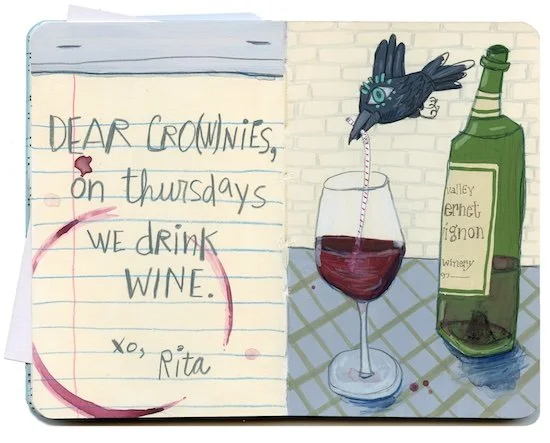 DEAR CRO(W)NIES,
on thursdays
WE drink
WINE.
xo,
Rita
valley
ernet
ignon
winery